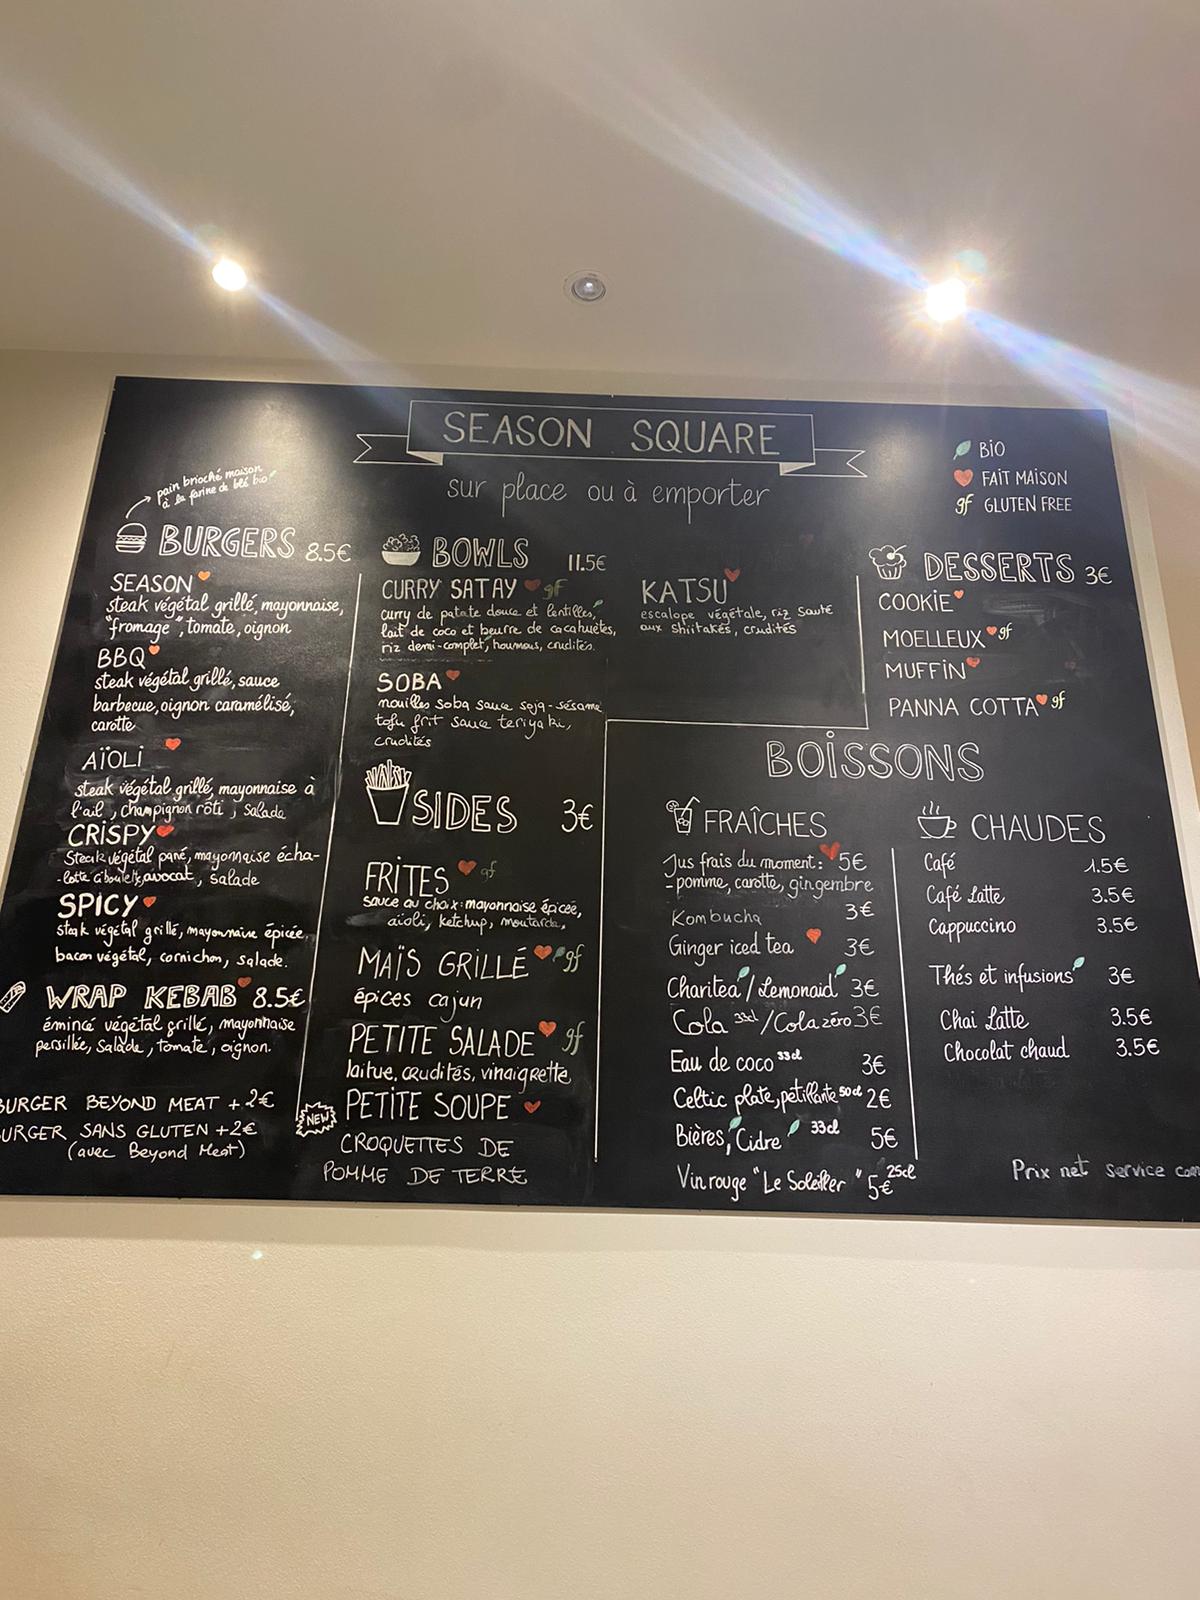 SEASON SQUARE
sur place ou à emporter
BIO
FAIT MAISON
gf GLUTEN FREE
pain brioché maison
à la farine de blé bio
BURGERS 8.5€
SEASON
steak végétal grillé, mayonnaise,
"fromage", tomate, oignon
BBQ
steak végétal grillé, sauce
barbecue, oignon caramélisé,
carotte
AÏOLI
steak végétal grillé, mayonnaise à
l'ail, champignon rôti, salade
CRISPY
Steak végétal pané, mayonnaise écha-
-lotte ciboulette, avocat, salade
SPICY
steak végétal grillé, mayonnaise épicée,
bacon végétal, cornichon, salade.
WRAP KEBAB 8.5€
émincé végétal grillé, mayonnaise
persillée, salade, tomate, oignon.
BURGER BEYOND MEAT +2€
BURGER SANS GLUTEN +2€
(avec Beyond Meat)
BOWLS 11.5€
CURRY SATAY gf
curry de patate douce et lentilles,
lait de coco et beurre de cacahuètes,
riz demi-complet, houmous, crudités.
SOBA
nouilles soba sauce soja-sésame
tofu frit sauce teriyaki,
crudités
KATSU
escalope végétale, riz sauté
aux shiitakés, crudités
SIDES 3€
FRITES gf
sauce au choix: mayonnaise épicée,
aïoli, ketchup, moutarde,
MAÏS GRILLÉ gf
épices cajun
PETITE SALADE gf
laitue, crudités, vinaigrette
PETITE SOUPE
NEW
CROQUETTES DE
POMME DE TERRE
DESSERTS 3€
COOKIE
MOELLEUX gf
MUFFIN
PANNA COTTA gf
BOISSONS
FRAÎCHES
Jus frais du moment: 5€
-pomme, carotte, gingembre
Kombucha 3€
Ginger iced tea 3€
Charitea/Lemonaid 3€
Cola 33cl/Cola zéro 3€
Eau de coco 33cl 3€
Celtic plate, pétillante 50cl 2€
Bières, Cidre 33cl 5€
Vin rouge "Le Soleiller" 5€ 25cl
CHAUDES
Café 1.5€
Café Latte 3.5€
Cappuccino 3.5€
Thés et infusions 3€
Chai Latte 3.5€
Chocolat chaud 3.5€
Prix net service com